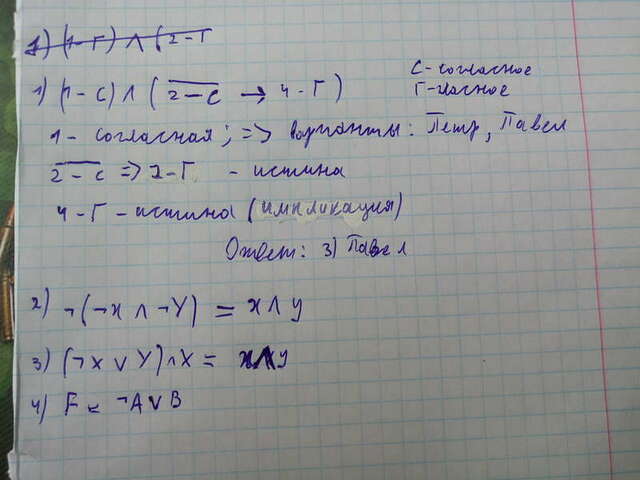 1) (1-Г) ∧ (2-Г
1) (1-С) ∧ (2-С → 4-Г)
С-согласное
Г-гласное
1 - согласная; => варианты: Петр, Павел
2-С => 2-Г - истина
4-Г - истина (импликация)
Ответ: 3) Павел
2) ¬(¬X ∧ ¬Y) = X ∧ Y
3) (¬X ∨ Y) ∧ X = X ∧ Y
4) F = ¬A ∨ B